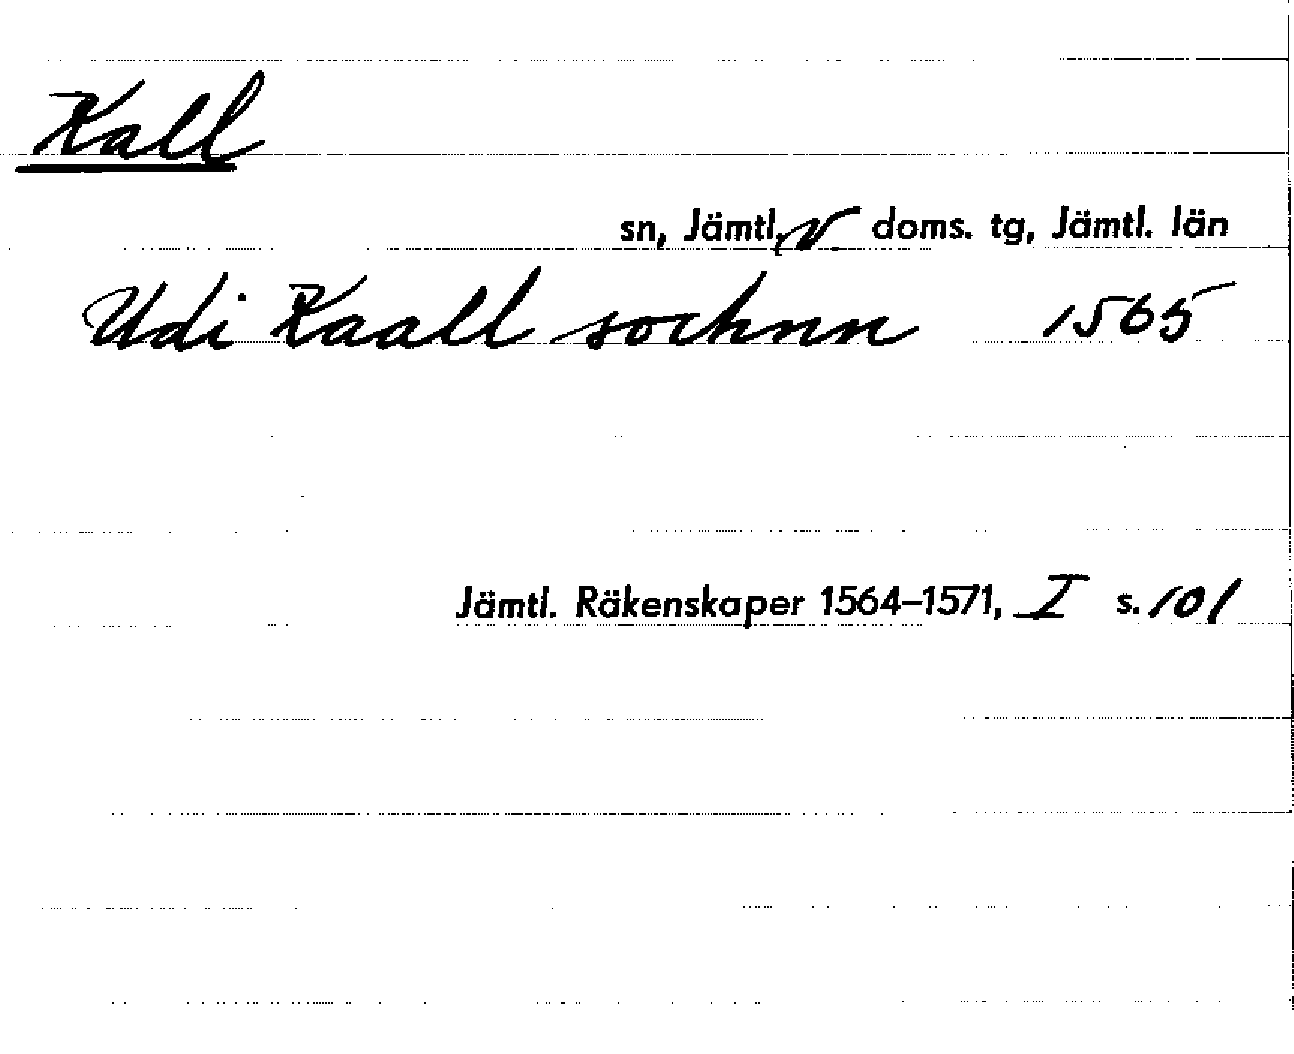 Kall
sn, Jämtl. v. doms. tg, Jämtl. län
Udi Kaall sochnn 1565
Jämtl. Räkenskaper 1564–1571, I s. 101